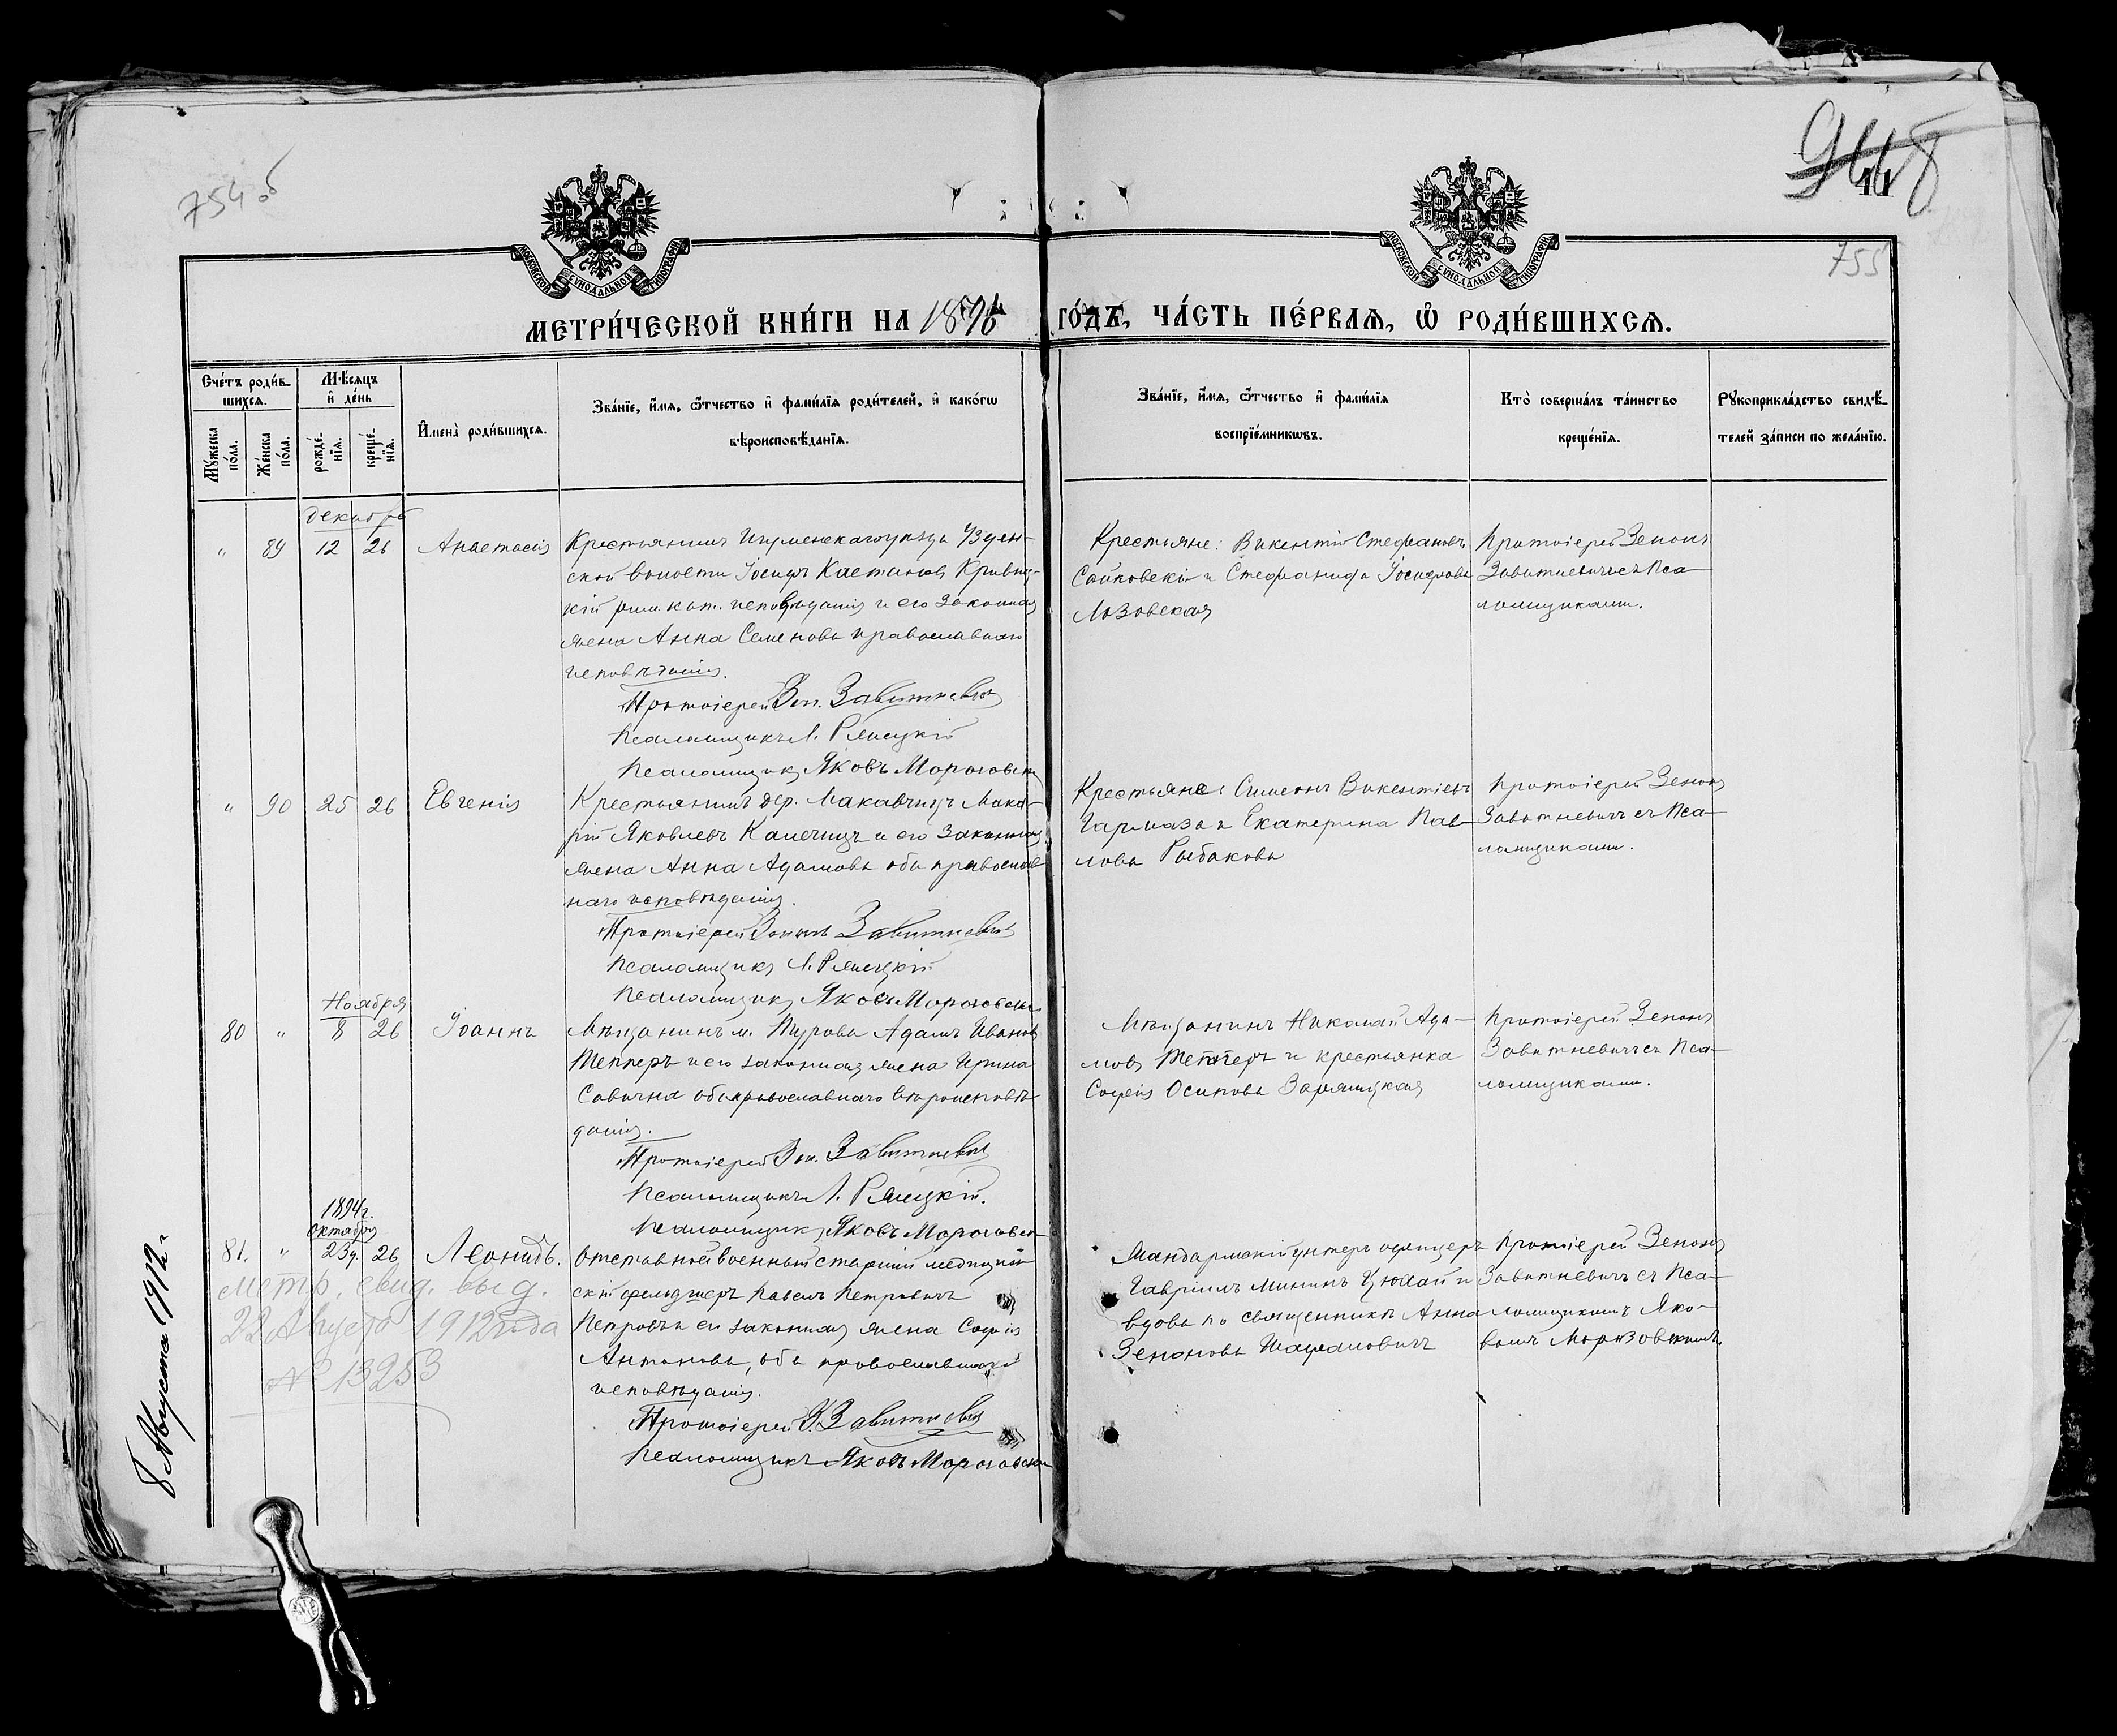 754 об
755
МОСКОВСКОЙ СѴНОДАЛЬНОЙ ТИПОГРАФІИ
МОСКОВСКОЙ СѴНОДАЛЬНОЙ ТИПОГРАФІИ
МЕТРИ́ЧЕСКОЙ КНИ́ГИ НА
ГО́ДЪ, ЧА́СТЬ ПЕ́РВАѦ, Ѡ РОДИ́ВШИХСѦ.
Сче́тъ роди́в-
шихсѧ.
Мꙋ́жеска по́ла.
Же́нска по́ла.
Мѣ́сѧцъ и де́нь
рожде́-
нїѧ.
креще́-
нїѧ.
Имена̀ роди́вшихсѧ.
Зва́нїе, и́мѧ, ѻ҆́тчество и фами́лїѧ роди́телей, и како́гѡ
вѣроисповѣ́данїѧ.
Зва́нїе, и́мѧ, ѻ҆́тчество и фами́лїѧ
воспрїе́мникѡвъ.
Кто̀ соверша́лъ та́инство
креще́нїѧ.
Рꙋкоприкла́дство свидѣ́-
телей за́писи по жела́нїю.
Декабрь
" 89 12 26 Анастасія
Крестьянинъ Игуменскаго уѣзда Узден-
ской волости Іосифъ Каетановъ
кій рим. кат. исповѣданія и его законная
жена Анна Семенова православнаго
исповѣданія.
Протоіерей Зен. Завитневичъ
Псаломщикъ Л.
Псаломщикъ Яковъ
Крестьяне: Викентій Стефановъ
и Стефанида Іосифова
Лозовская
Протоіерей Зенонъ
Завитневичъ съ Пса-
ломщиками.
" 90 25 26 Евгенія
Крестьянинъ дер. Макавчицъ Мака-
рій Яковлевъ Калечицъ и его законная
жена Анна Адамова оба православ-
наго исповѣданія.
Протоіерей Зенонъ Завитневичъ
Псаломщикъ Л.
Псаломщикъ Яковъ
Крестьяне: Симеонъ Викентіевъ
Гармаза и Екатерина Пав-
лова Рыбакова
Протоіерей Зенонъ
Завитневичъ съ Пса-
ломщиками.
Ноября
80 " 8 26 Іоаннъ
Мѣщанинъ м. Турова Адамъ Ивановъ
Теплеръ и его законная жена Ирина
Савична оба православнаго вѣроисповѣ-
данія.
Протоіерей Зен. Завитневичъ
Псаломщикъ Л.
Псаломщикъ Яковъ
Мѣщанинъ Николай Ада-
мовъ и крестьянка
Софія Осипова
Протоіерей Зенонъ
Завитневичъ съ Пса-
ломщиками.
1894г.
Октября
81. " 23д. 26 Леонидъ.
Отставной военный старшій медицин-
скій фельдшеръ Павелъ Петровичъ
Петровъ и его законная жена Софія
Антонова, оба православнаго
исповѣданія.
Протоіерей З. Завитневичъ
Псаломщикъ Яковъ
Жандармскій унтеръ офицеръ
Гавріилъ Мининъ и
вдова по священникѣ Анна
Зенонова
Протоіерей Зенонъ
Завитневичъ съ Пса-
ломщикомъ Яко-
вомъ
Метр. свид. выд.
22 Августа 1912 года
№ 13253
8 Августа 1912 г.